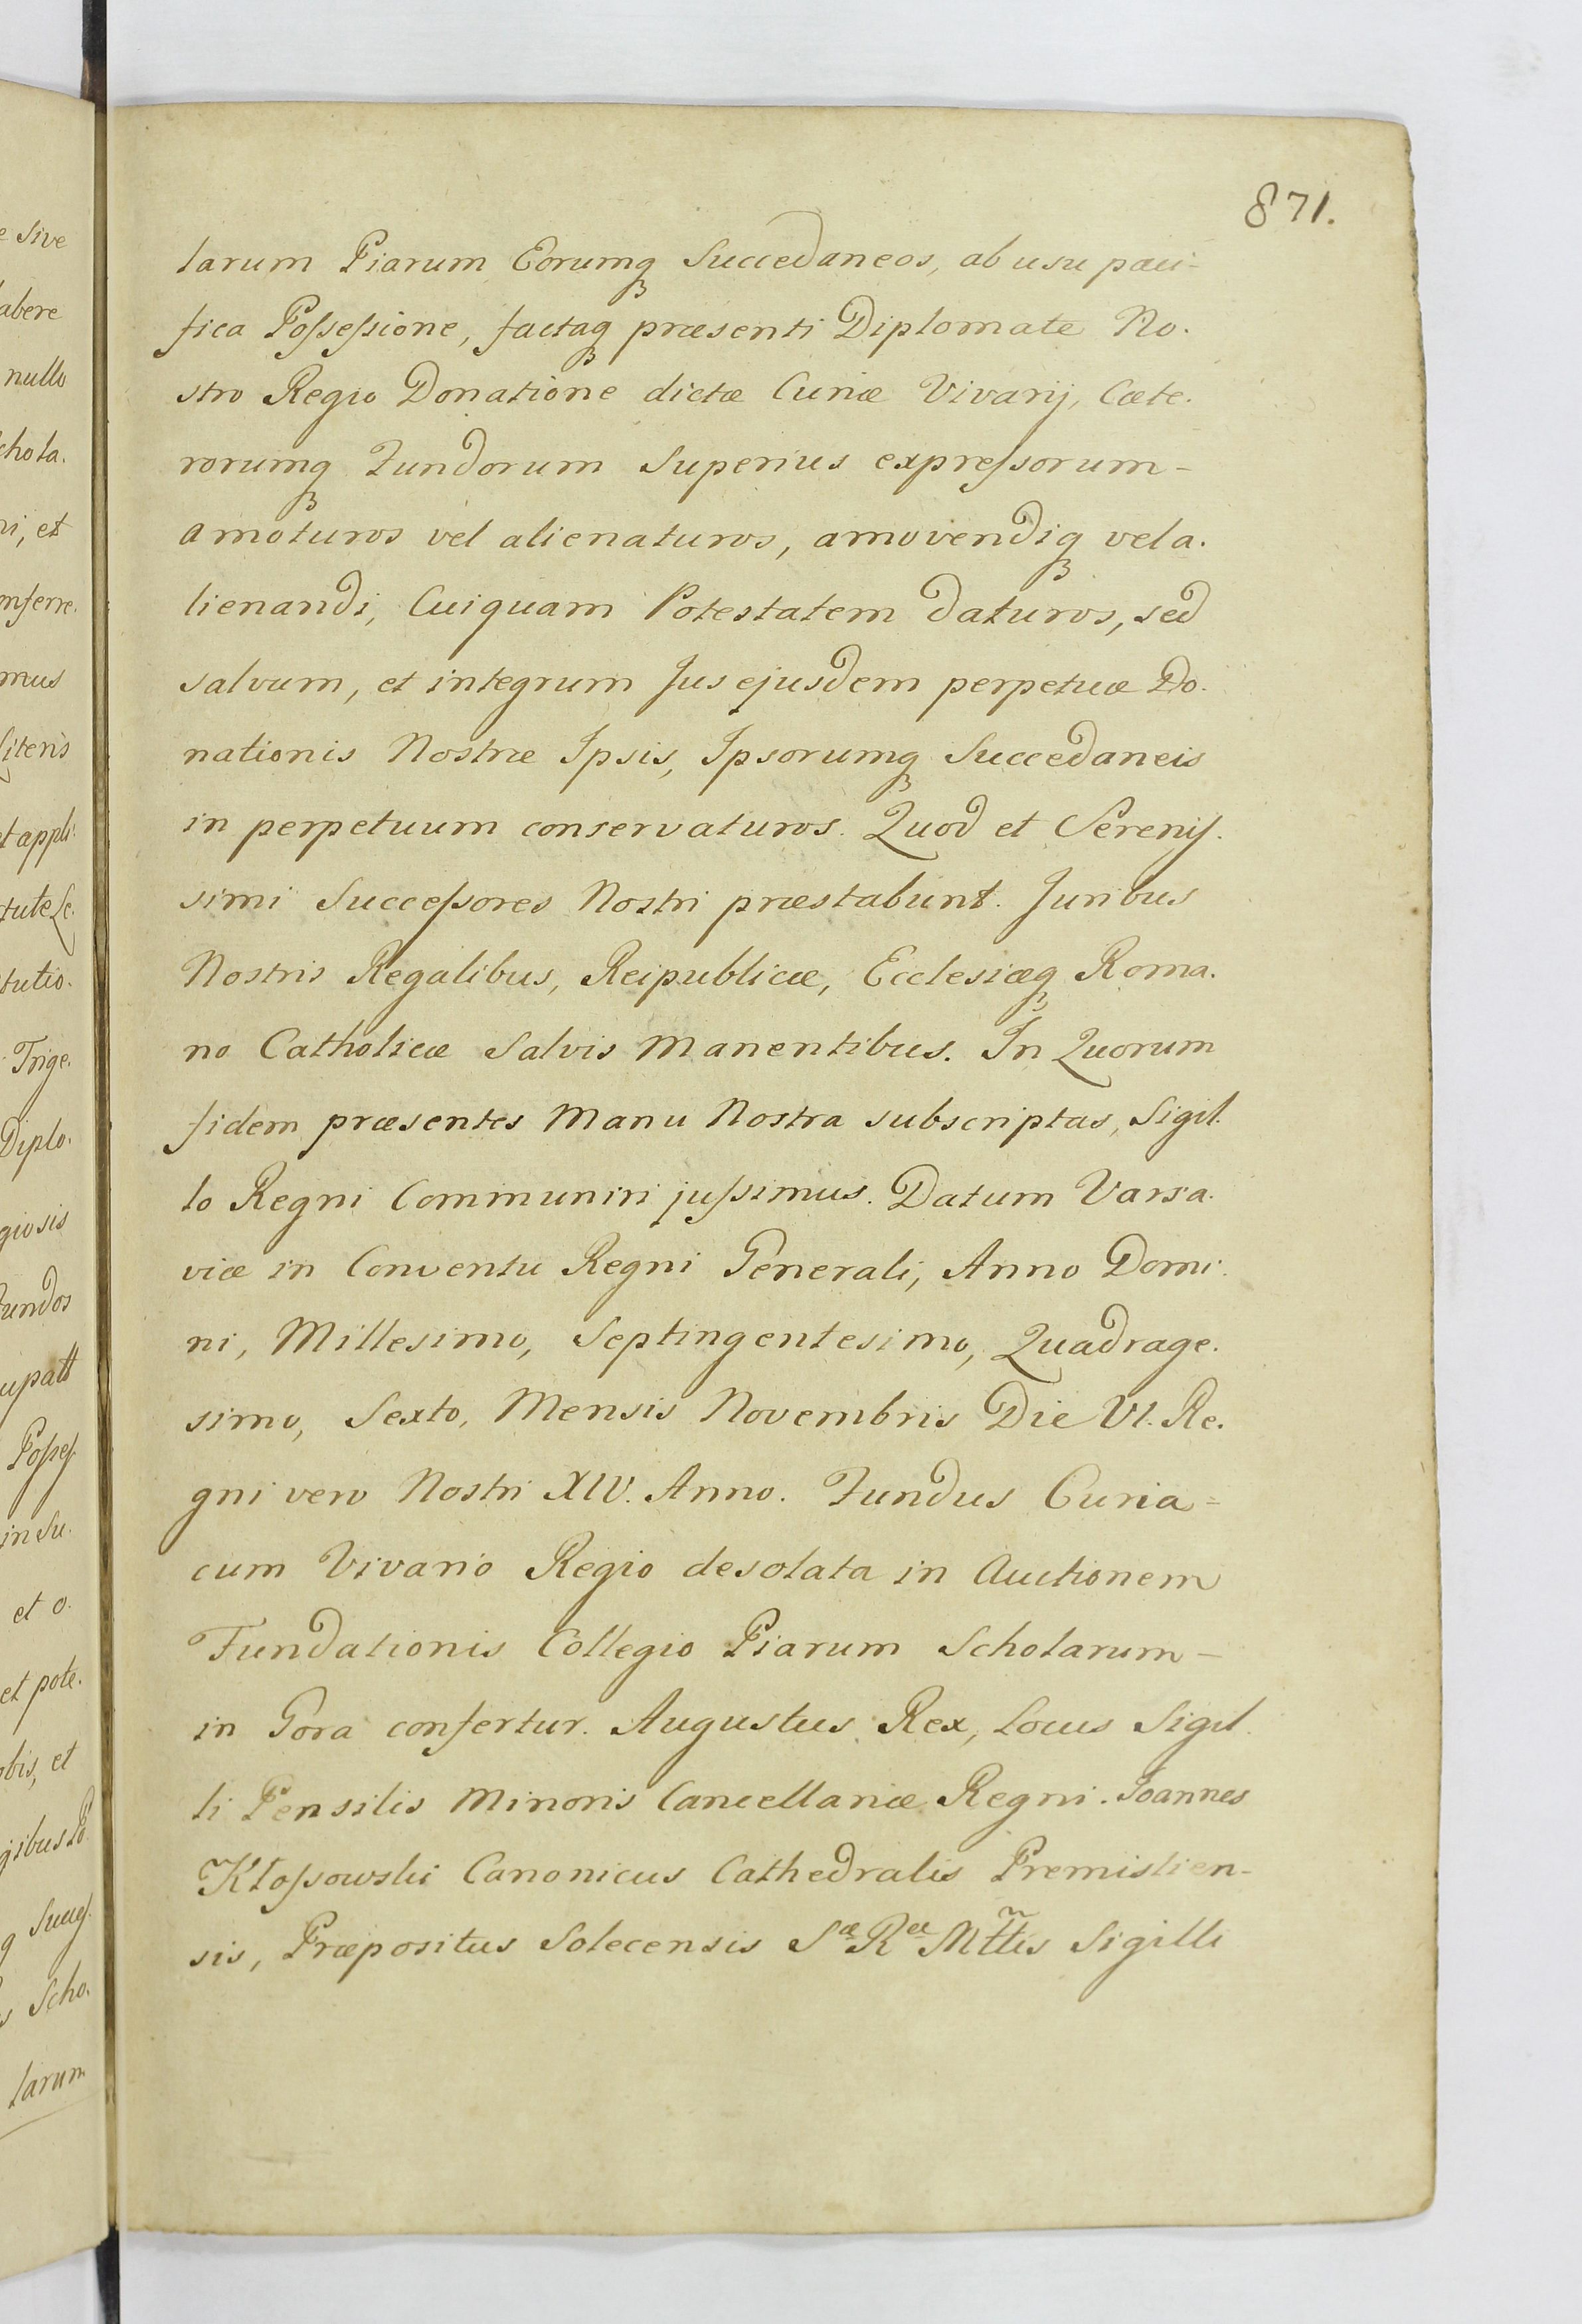 871.
larum Piarum Eorumqꝫ Succedaneos, ab usu paci-
fica Poſseſsione, factaqꝫ præsenti Diplomate No.
stro Regio Donatione dictæ Curiæ Vivarij, Cæte.
rorumqꝫ Fundorum Superius expreſsorum-
amoturos vel alienaturos, amovendiqꝫ vel a.
lienandi, Cuiquam Potestatem daturos, sed
salvum, et integrum Jus ejusdem perpetuæ Do.
nationis Nostræ Ipsis, Ipsorumqꝫ Succedaneis
in perpetuum conservaturos. Quod et Sereniſ.
simi Succeſsores Nostri præstabunt. Juribus
Nostris Regalibus, Reipublicæ, Ecclesiæqꝫ Roma.
no Catholicæ Salvis Manentibus. In Quorum
fidem præsentes Manu Nostra subscriptas, Sigil.
lo Regni Communiri juſsimus. Datum Varsa.
viæ in Conventu Regni Generali, Anno Domi.
ni, Millesimo, Septingentesimo, Quadrage.
simo, Sexto, Mensis Novembris Die VI. Re.
gni vero Nostri XIV. Anno. Fundus Curia=
cum Vivario Regio desolata in Auctionem
Fundationis Collegio Piarum Scholarum-
in Gora confertur. Augustus Rex, Locus Sigil.
li Pensilis Minoris Cancellariæ Regni. Joannes
Kłoſsowski Canonicus Cathedralis Premislien-
sis, Præpositus Solecensis Sæ Ræ Mttis Sigilli